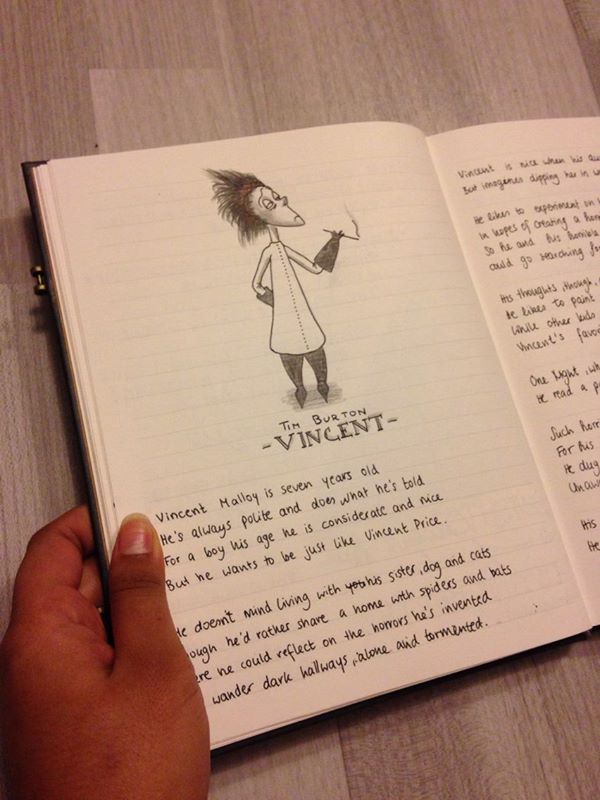 TIM BURTON
-VINCENT-
Vincent Malloy is seven years old
He's always polite and does what he's told
For a boy his age he is considerate and nice
But he wants to be just like Vincent Price.
He doesn't mind living with his sister, dog and cats
ough he'd rather share a home with spiders and bats
ere he could reflect on the horrors he's invented
wander dark hallways, alone and tormented.
Vincent is nice when his au
But imagenes dipping her in w
He likes to experiment on
in hopes of creating a horr
So he and his horrible
could go searching for
His thoughts, though,
He likes to paint
While other kids
Vincent's favor
One Night, wh
He read a p
Such horr
For his
He dug
Unaw
His
He